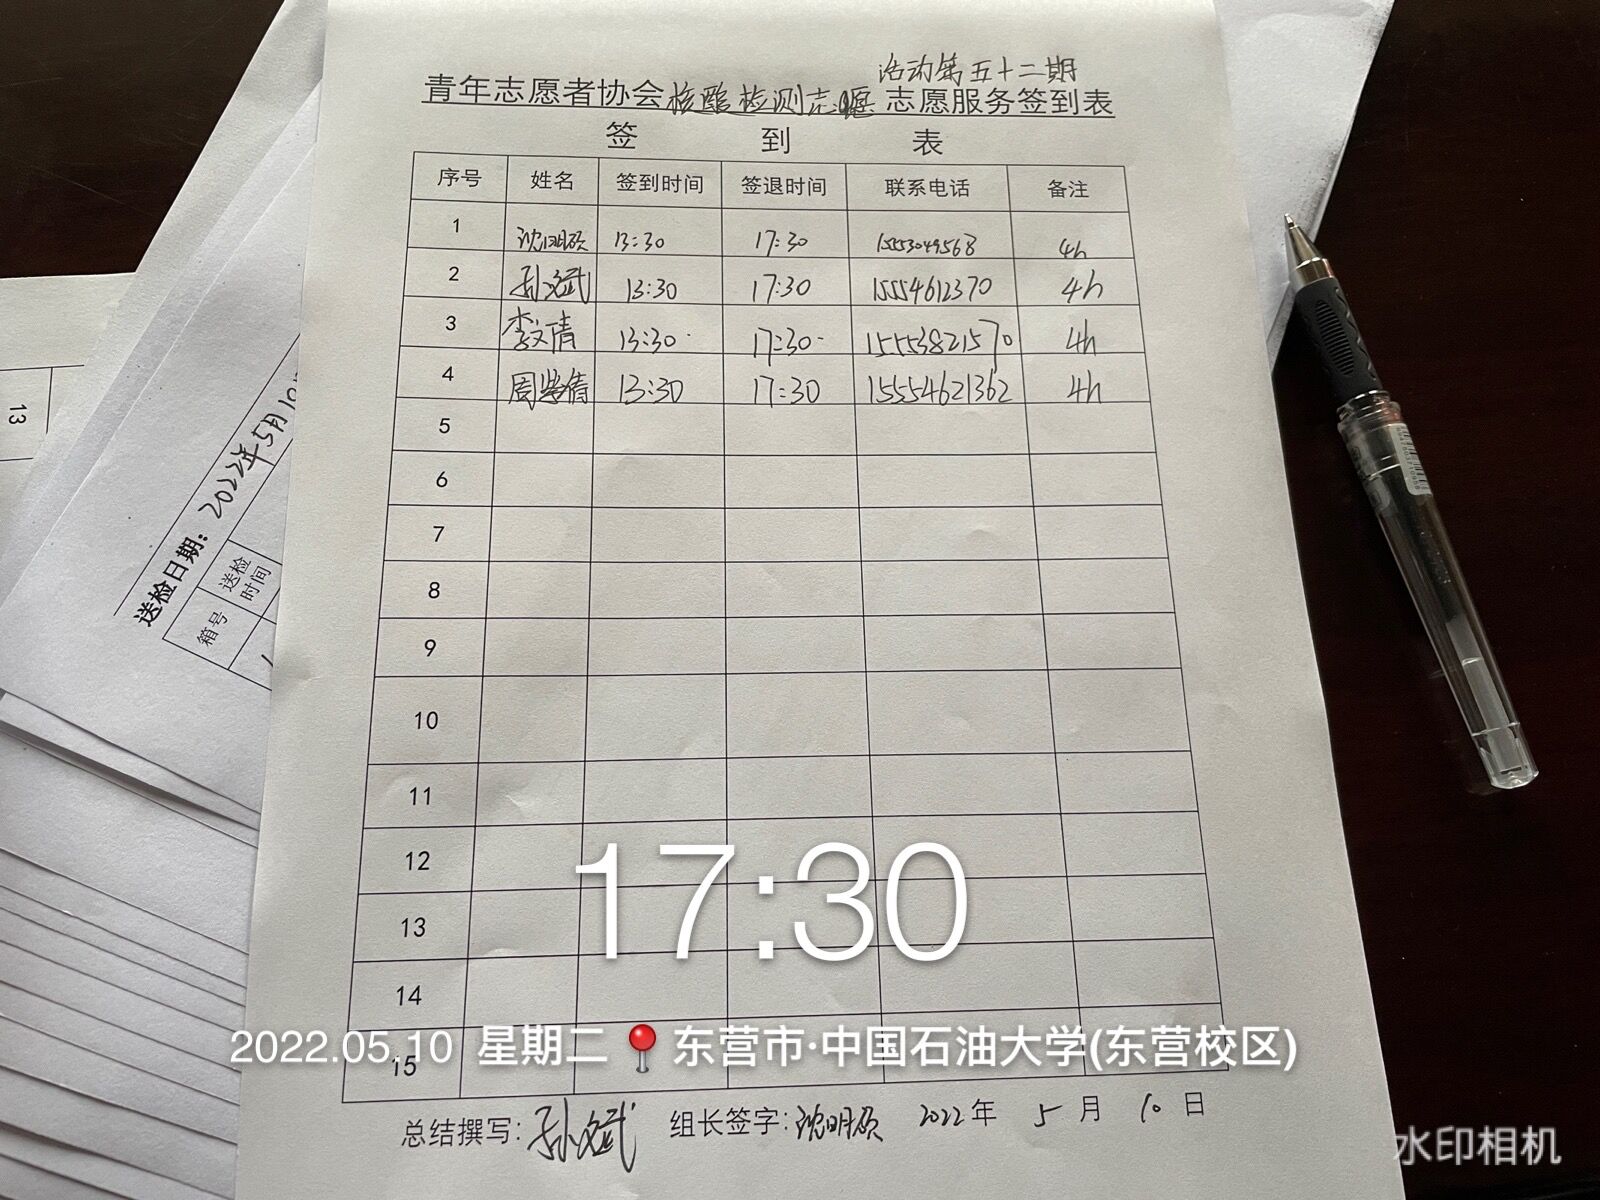 活动第五十二期
青年志愿者协会核酸检测志愿志愿服务签到表
签 到 表
序号 姓名 签到时间 签退时间 联系电话 备注
1 沈明硕 13:30 17:30 15553049568 4h
2 孙文斌 13:30 17:30 15554612370 4h
3 李文倩 13:30 17:30 15553821570 4h
4 周 倩 13:30 17:30 15554621362 4h
5
6
7
8
9
10
11
12
13
14
15
17:30
2022.05.10 星期二 东营市·中国石油大学(东营校区)
总结撰写:孙文斌 组长签字:沈明硕 2022年 5月 10日
水印相机
13
送检日期:2022年5月10
箱号 送检时间